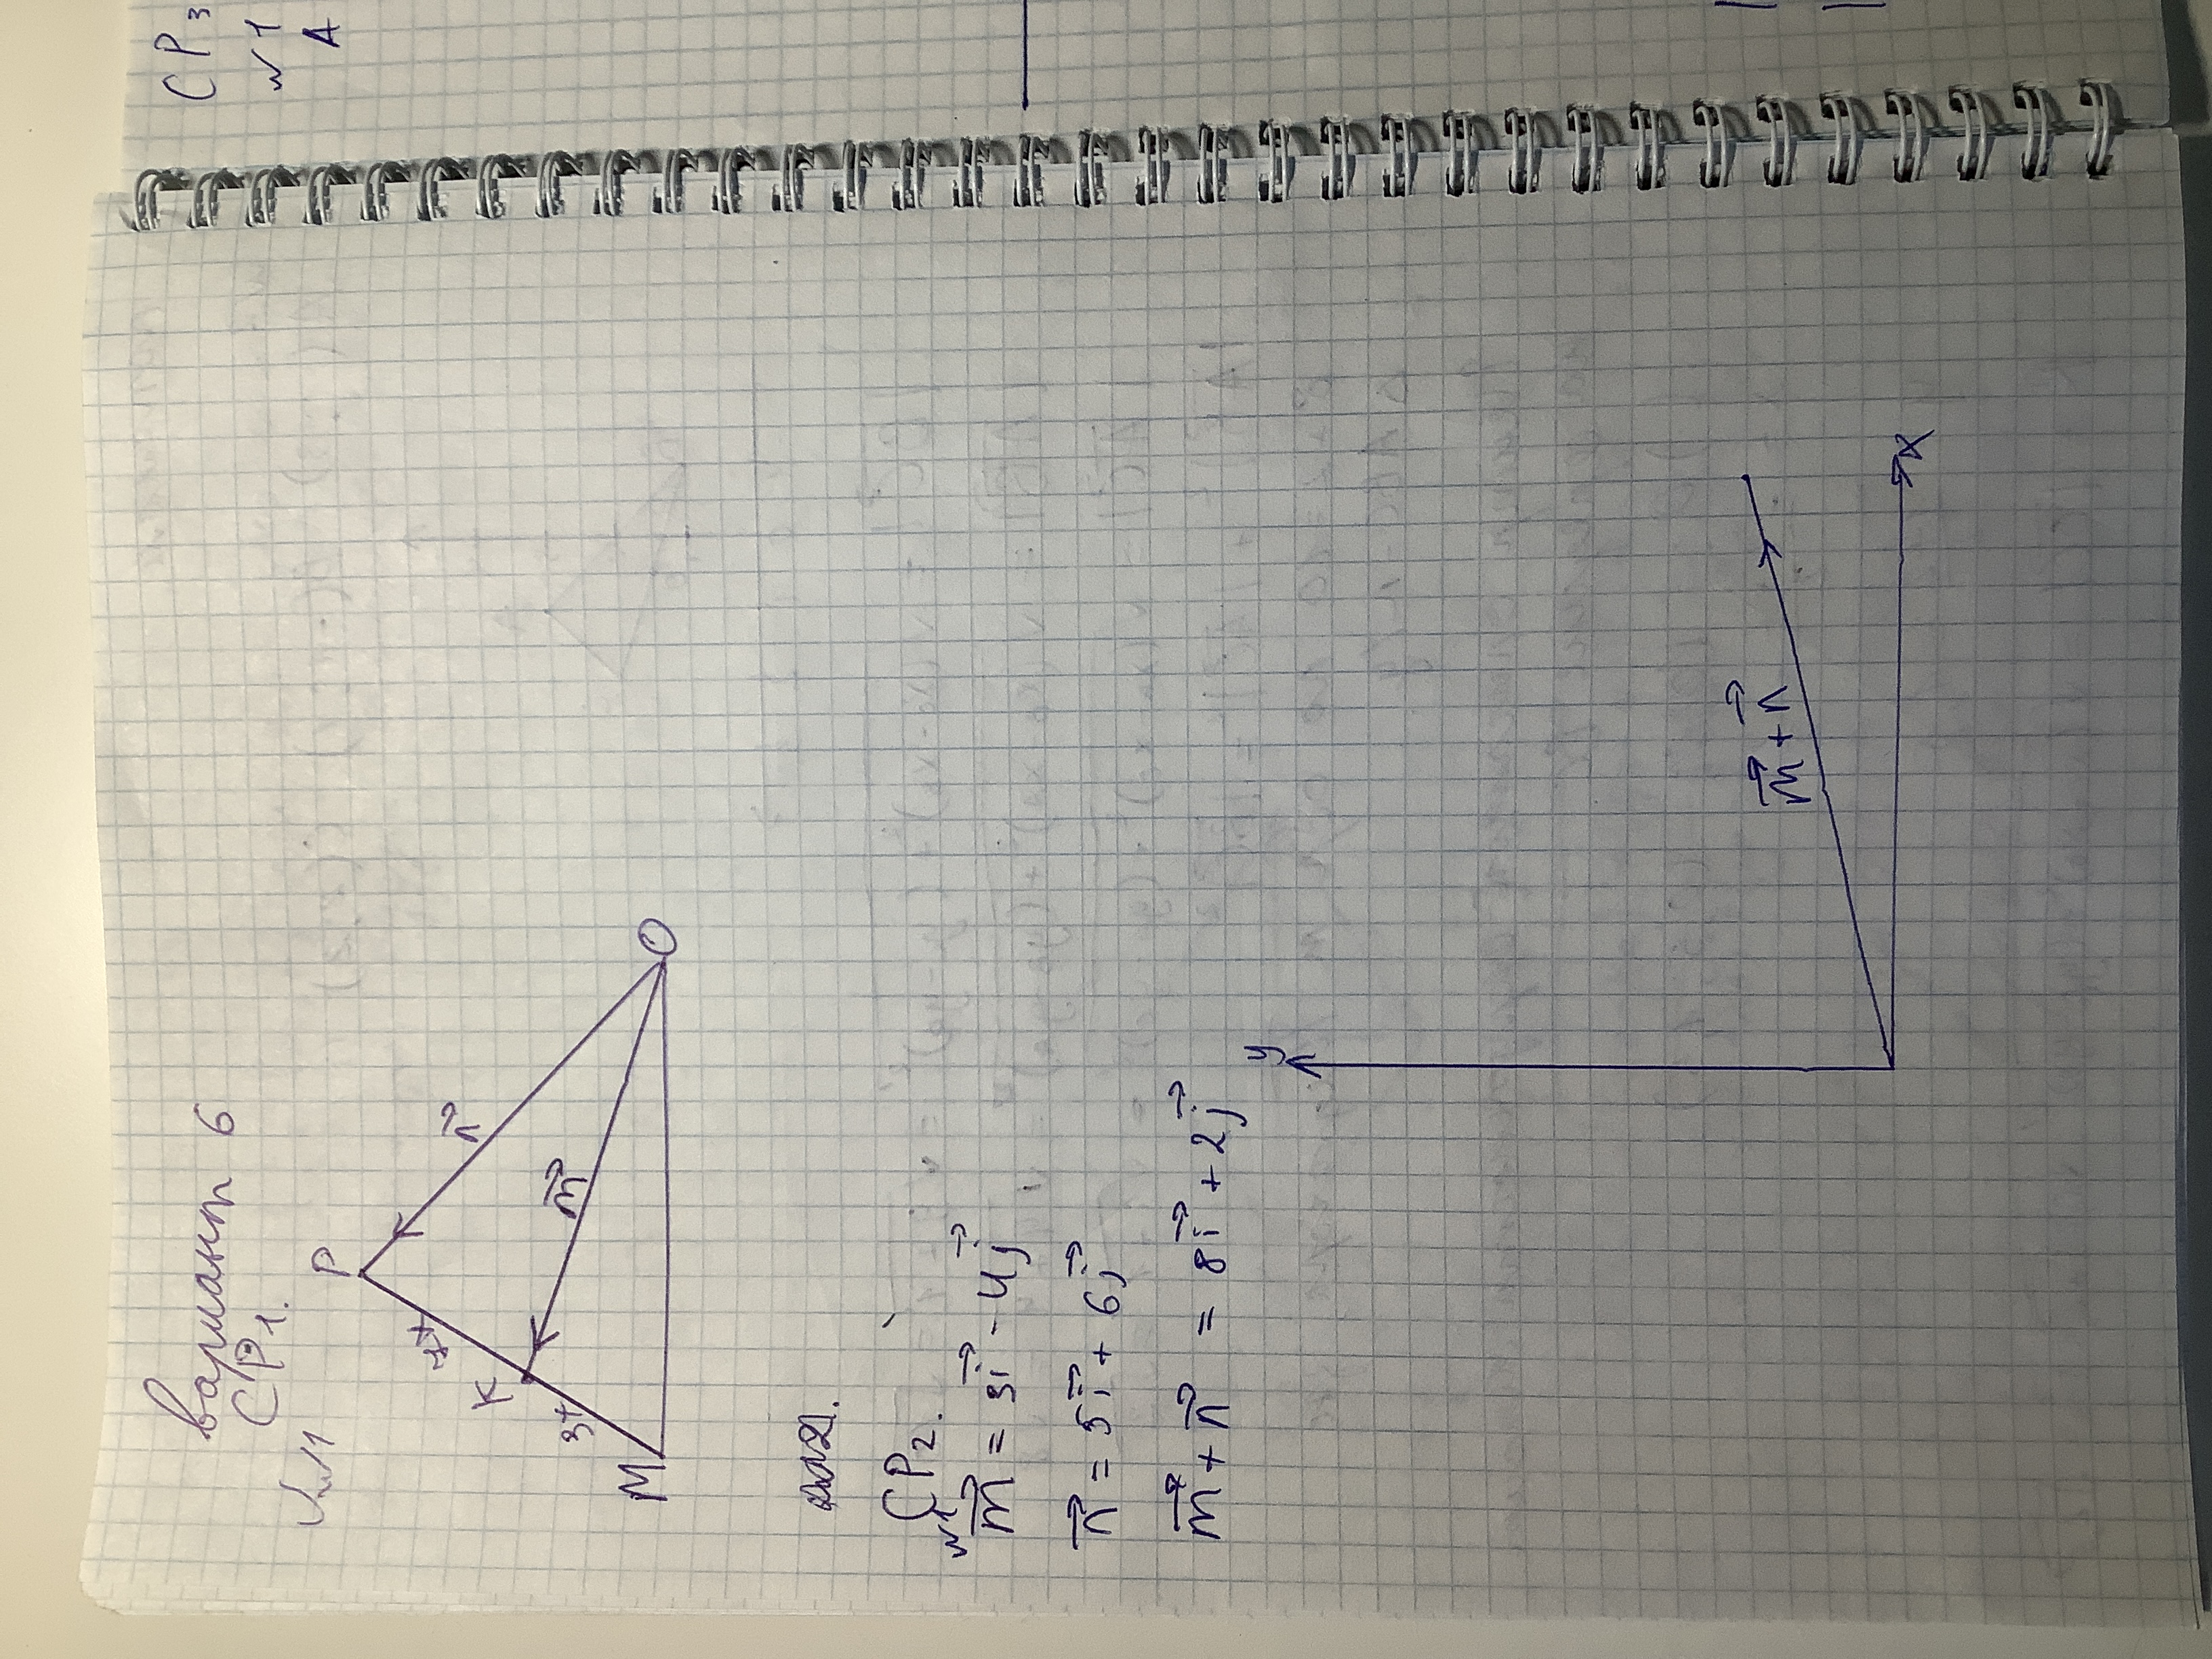 вариант 6
СР1.
№1
P
7x
n⃗
K
m⃗
3x
M
O
СР2.
№1
m⃗ = 3i⃗ - 4j⃗
n⃗ = 5i⃗ + 6j⃗
m⃗ + n⃗ = 8i⃗ + 2j⃗
y
m⃗ + n⃗
x
СР3
№1
A